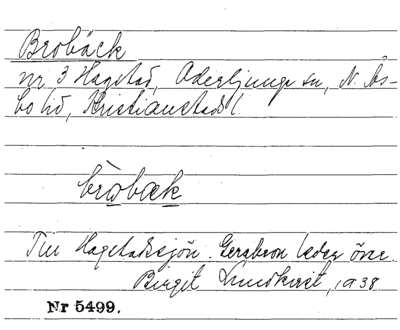 Brobäck
nr 3 Hagstad, Oderljunga sn, N. Ås-
bo hd, Kristianstads l.
bròbæk
Till Hagstadsjön. Gerabron leder över.
Birgit Lundkvist, 1938
Nr 5499.